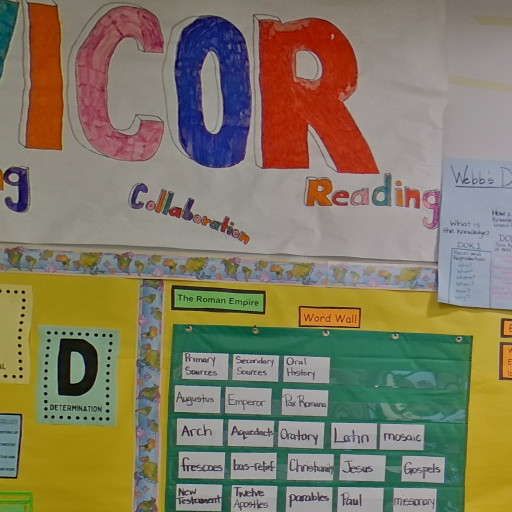 ICOR
Collaboration
Reading
Webb's D
What is
the Knowledge?
DOK 1
The Roman Empire
Word Wall
D
DETERMINATION
Primary Sources
Secondary Sources
Oral History
Augustus
Emperor
Pax Romana
Arch
Aqueducts
Oratory
Latin
mosaic
frescoes
bas-relief
Christianity
Jesus
Gospels
New Testament
Twelve Apostles
parables
Paul
missionary